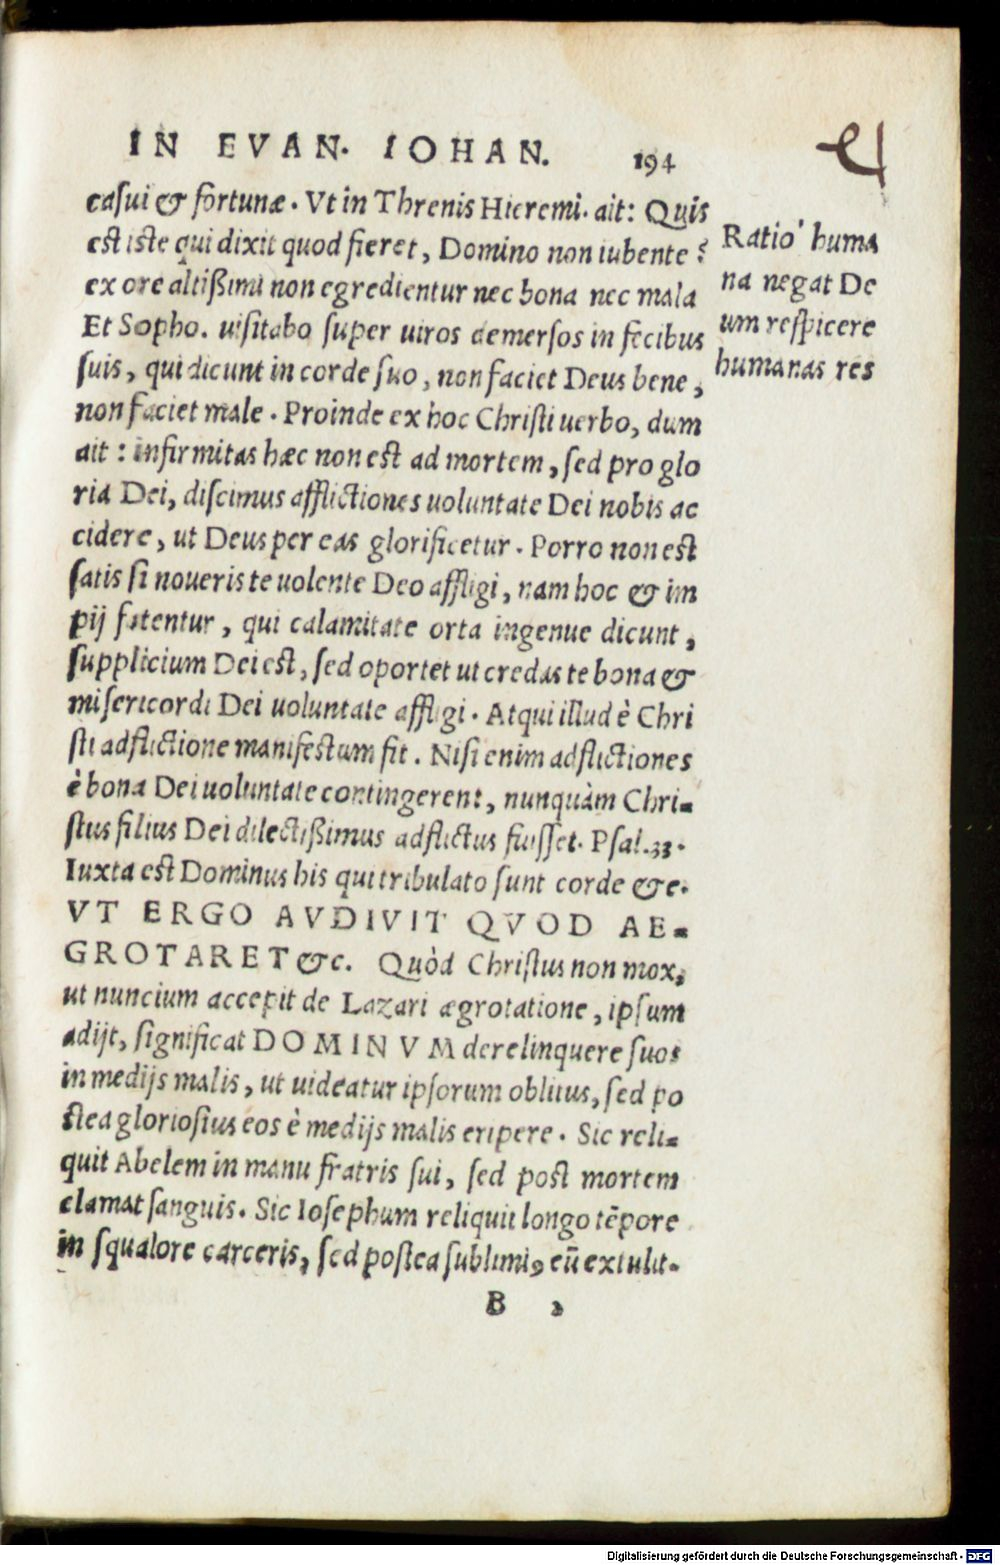 IN EVAN. IOHAN. 194
casui & fortunæ. Vt in Threnis Hieremi. ait: Quis
est iste qui dixit quod fieret, Domino non iubente?
ex ore altißimi non egredientur nec bona nec mala
Et Sopho. uisitabo super uiros demersos in fecibus
suis, qui dicunt in corde suo, non faciet Deus bene,
non faciet male. Proinde ex hoc Christi uerbo, dum
ait: infirmitas hæc non est ad mortem, sed pro glo
ria Dei, discimus afflictiones uoluntate Dei nobis ac
cidere, ut Deus per eas glorificetur. Porro non est
satis si noueris te uolente Deo affligi, nam hoc & im
pij fatentur, qui calamitate orta ingenue dicunt,
supplicium Dei est, sed oportet ut credas te bona &
misericordi Dei uoluntate affligi. Atqui illud è Chri
sti adflictione manifestum fit. Nisi enim adflictiones
è bona Dei uoluntate contingerent, nunquàm Chri-
stus filius Dei dilectißimus adflictus fuisset. Psal.33.
Iuxta est Dominus his qui tribulato sunt corde &c.
VT ERGO AVDIVIT QVOD AE-
GROTARET &c. Quòd Christus non mox,
ut nuncium accepit de Lazari ægrotatione, ipsum
adijt, significat DOMINVM derelinquere suos
in medijs malis, ut uideatur ipsorum oblitus, sed po
stea gloriosius eos è medijs malis eripere. Sic reli-
quit Abelem in manu fratris sui, sed post mortem
clamat sanguis. Sic Iosephum reliquit longo tēpore
in squalore carceris, sed postea sublimē eū extulit.
B 2
Ratio huma
na negat De
um respicere
humanas res
Digitalisierung gefördert durch die Deutsche Forschungsgemeinschaft - DFG